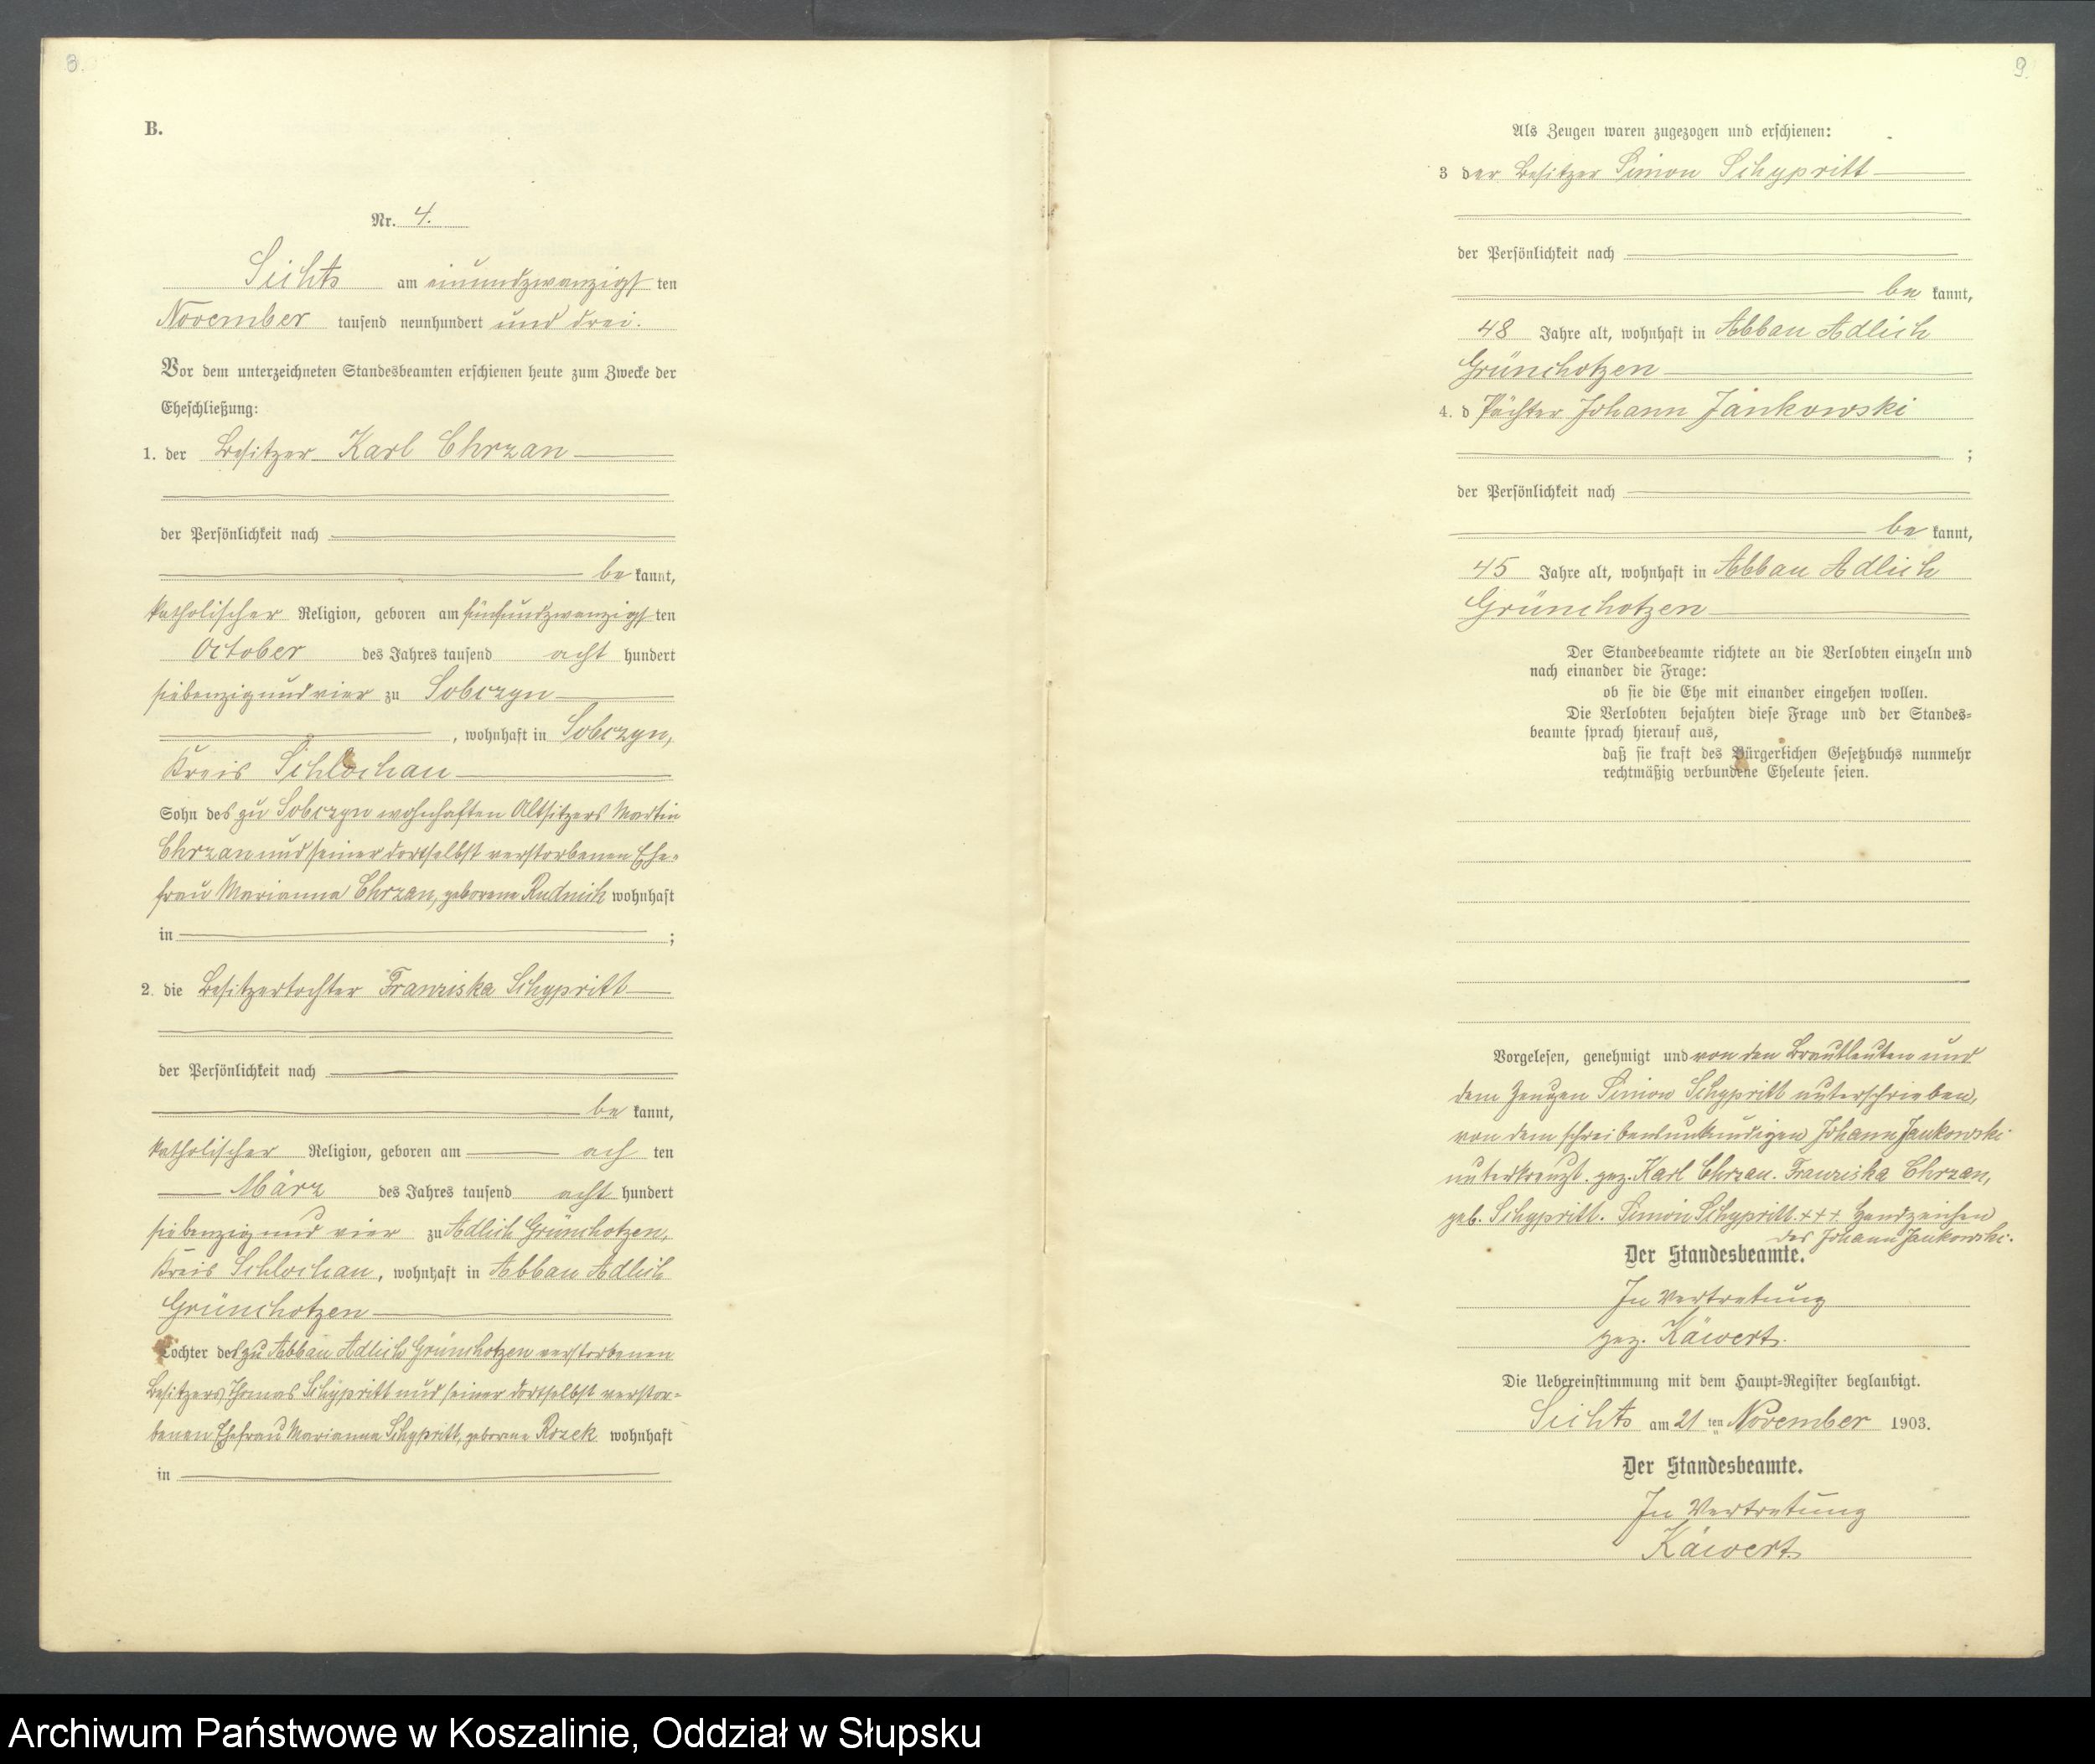 8.
B.
Nr. 4.
Sichts am einundzwanzigst ten
November tausend neunhundert und drei.
Vor dem unterzeichneten Standesbeamten erschienen heute zum Zwecke der
Eheschließung:
1. der Besitzer Karl Chrzan
der Persönlichkeit nach
be kannt,
katholischer Religion, geboren am fünfundzwanzigst ten
October des Jahres tausend acht hundert
siebenzig und vier zu Sobczyn
, wohnhaft in Sobczyn,
Kreis Schlochau
Sohn des zu Sobczyn wohnhaften Altsitzers Martin
Chrzan und seiner dortselbst verstorbenen Ehe-
frau Marianna Chrzan, geborene Rudnick wohnhaft
in ;
2. die Besitzertochter Franziska Schypritt
der Persönlichkeit nach
be kannt,
katholischer Religion, geboren am ach ten
März des Jahres tausend acht hundert
siebenzig und vier zu Adlich Grünchotzen,
Kreis Schlochau, wohnhaft in Abbau Adlich
Grünchotzen
Tochter des zu Abbau Adlich Grünchotzen verstorbenen
Besitzers Thomas Schypritt und seiner dortselbst verstor-
benen Ehefrau Marianna Schypritt, geborene Rozek wohnhaft
in
9.
Als Zeugen waren zugezogen und erschienen:
3 der Besitzer Simon Schypritt
der Persönlichkeit nach
be kannt,
48 Jahre alt, wohnhaft in Abbau Adlich
Grünchotzen
4. d Pächter Johann Jankowski
;
der Persönlichkeit nach
be kannt,
45 Jahre alt, wohnhaft in Abbau Adlich
Grünchotzen
Der Standesbeamte richtete an die Verlobten einzeln und
nach einander die Frage:
ob sie die Ehe mit einander eingehen wollen.
Die Verlobten bejahten diese Frage und der Standes-
beamte sprach hierauf aus,
daß sie kraft des Bürgerlichen Gesetzbuchs nunmehr
rechtmäßig verbundene Eheleute seien.
Vorgelesen, genehmigt und von den Brautleuten und
dem Zeugen Simon Schypritt unterschrieben,
von dem schreibensunkundigen Johann Jankowski
unterkreuzt. gez. Karl Chrzan. Franziska Chrzan,
geb. Schypritt. Simon Schypritt. +++ Handzeichen
des Johann Jankowski.
Der Standesbeamte.
In Vertretung
gez. Käwert.
Die Uebereinstimmung mit dem Haupt-Register beglaubigt.
Sichts am 21 ten November 1903.
Der Standesbeamte.
In Vertretung
Käwert.
Archiwum Państwowe w Koszalinie, Oddział w Słupsku